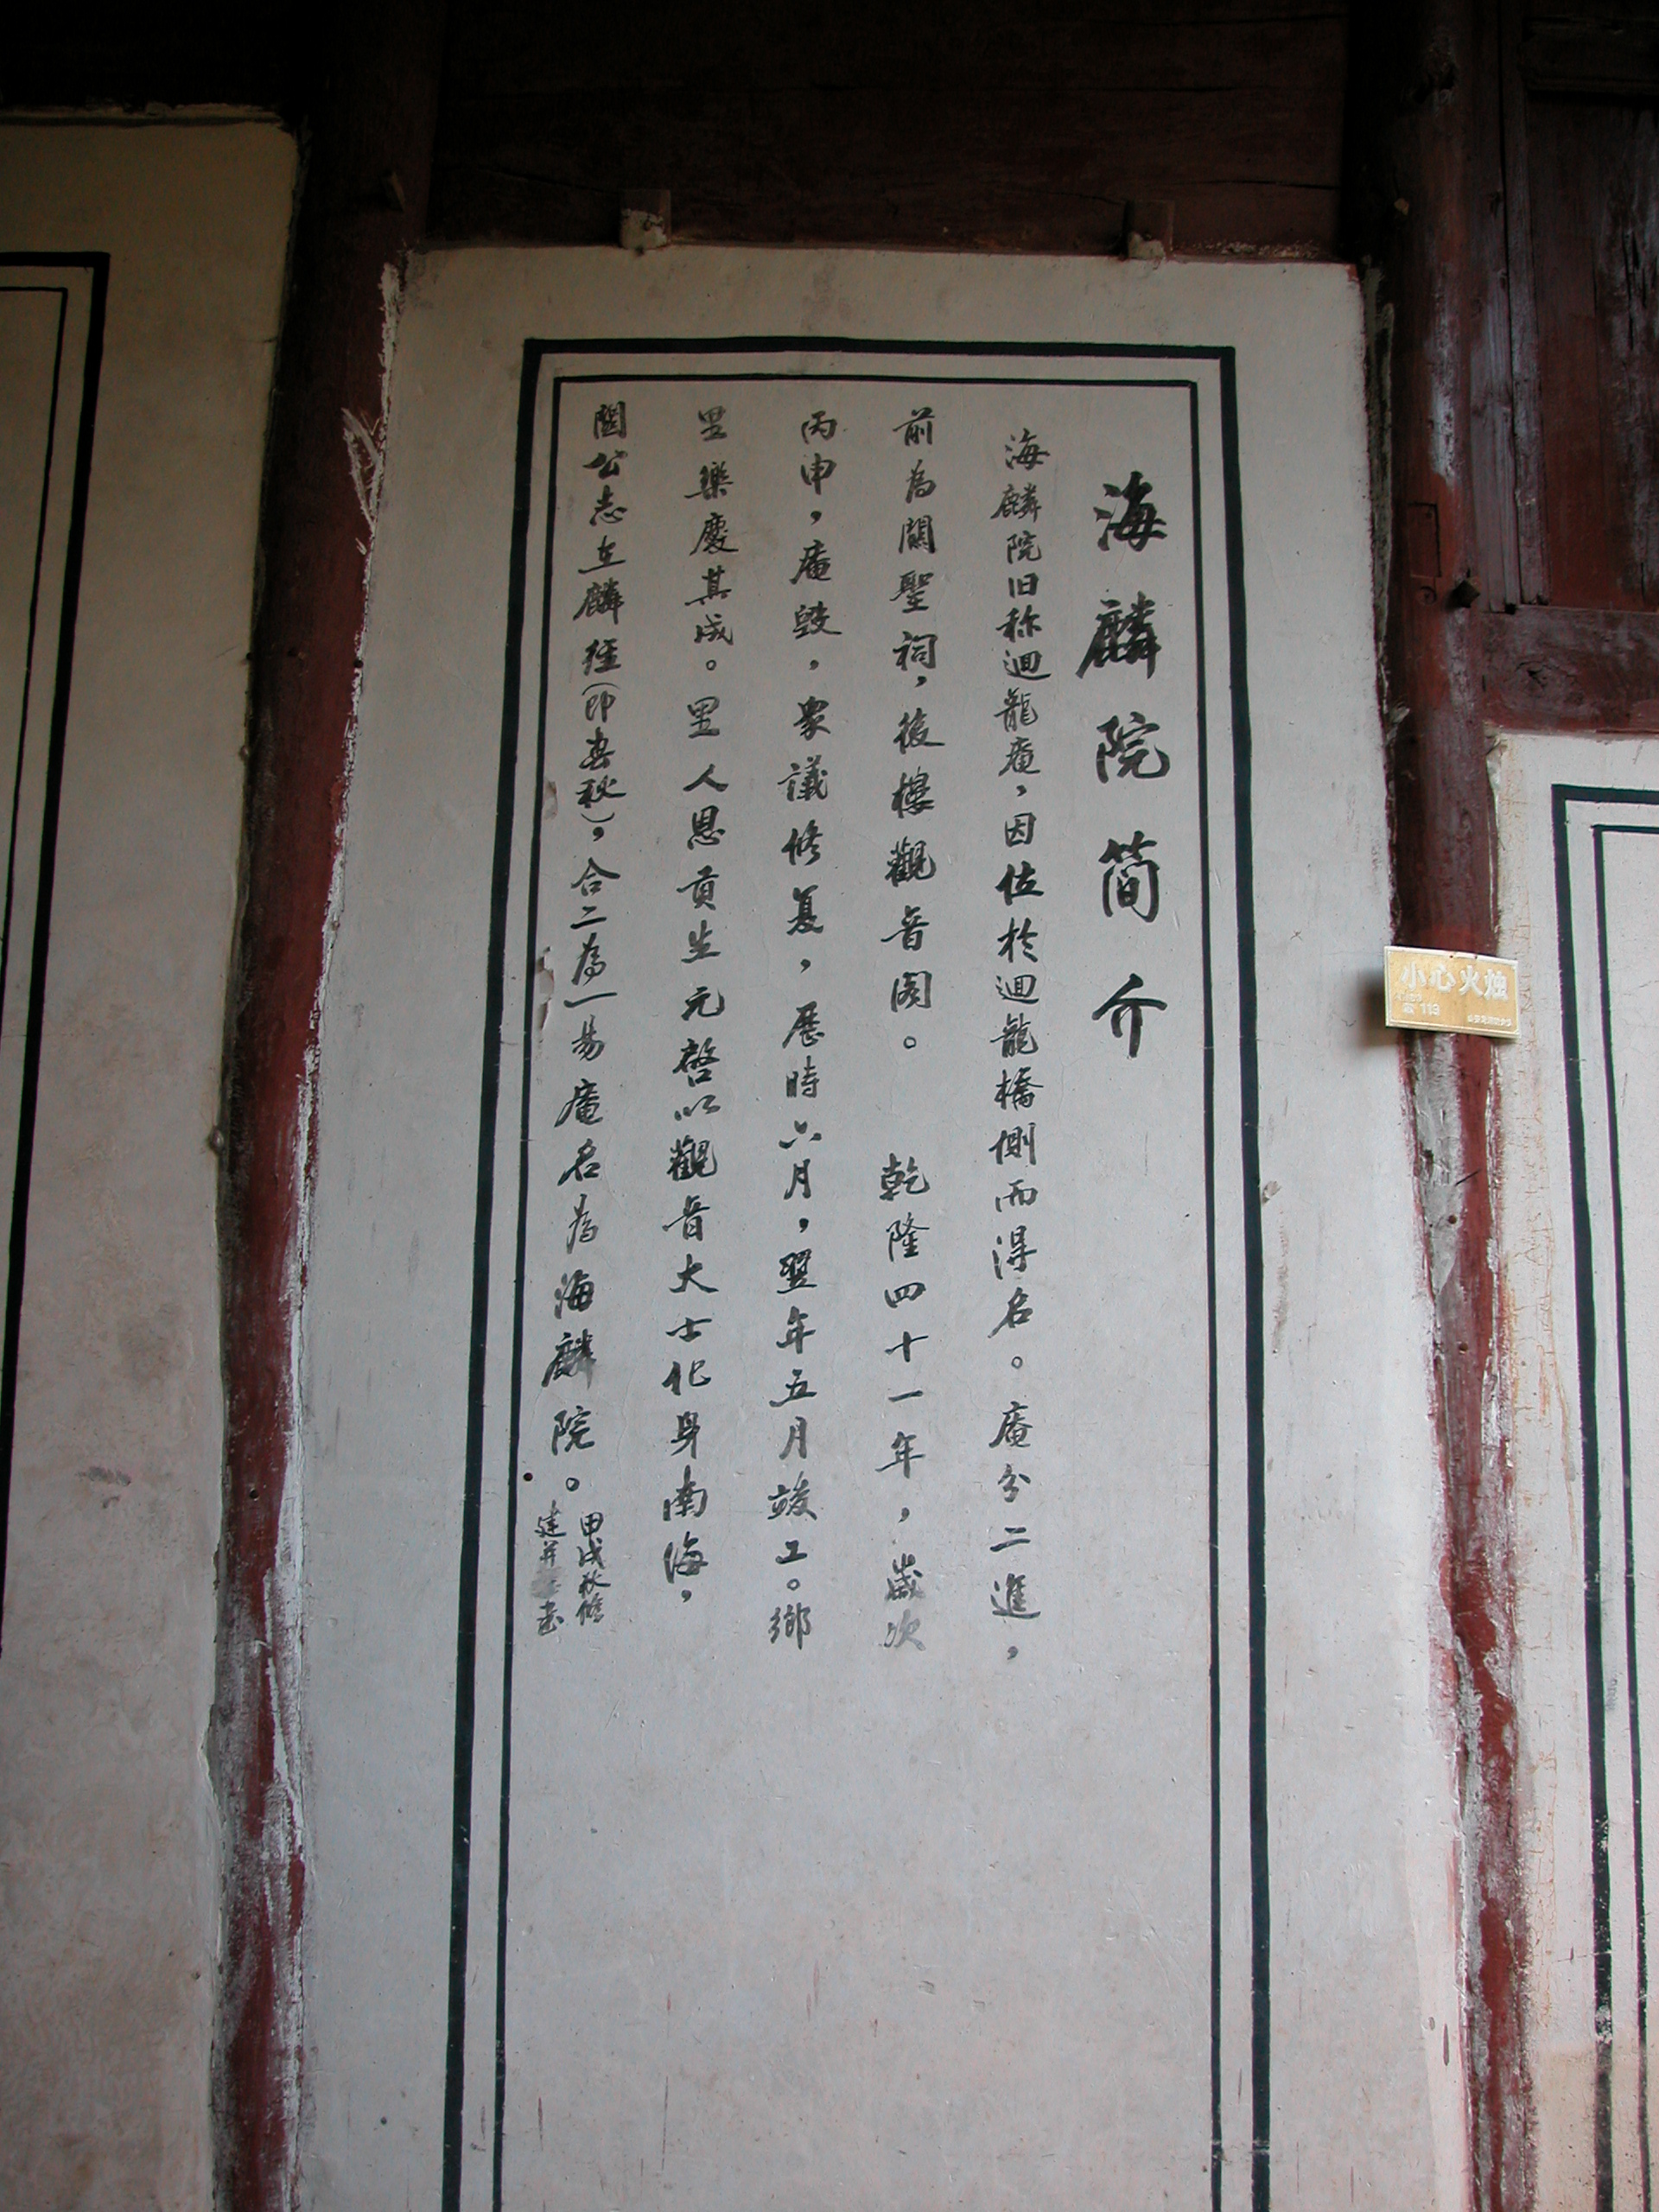 海麟院簡介
海麟院旧称迴龍庵，因位於迴龍橋側而得名。庵分二進，
前為關聖祠，後樓觀音阁。乾隆四十一年，歲次
丙申，庵毀，衆議修复，歷時六月，翌年五月竣工。鄉
里樂慶其成。里人恩貢生元啓以觀音大士化身南海，
關公志在麟經(即春秋)，合二為一易庵名為海麟院。
甲戌秋修
建并書
小心火烛
119